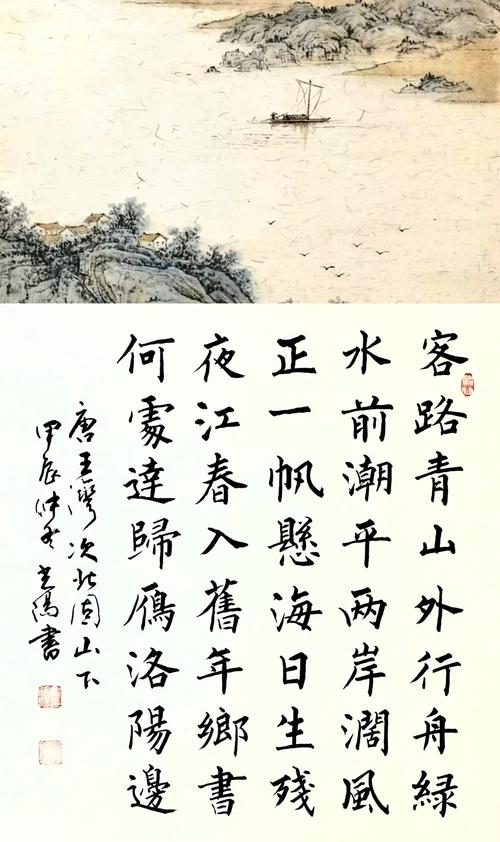 客路青山外行舟緑
水前潮平两岸濶風
正一帆懸海日生殘
夜江春入舊年鄉書
何處達歸鴈洛陽邊
唐王灣次北固山下
甲辰仲冬書